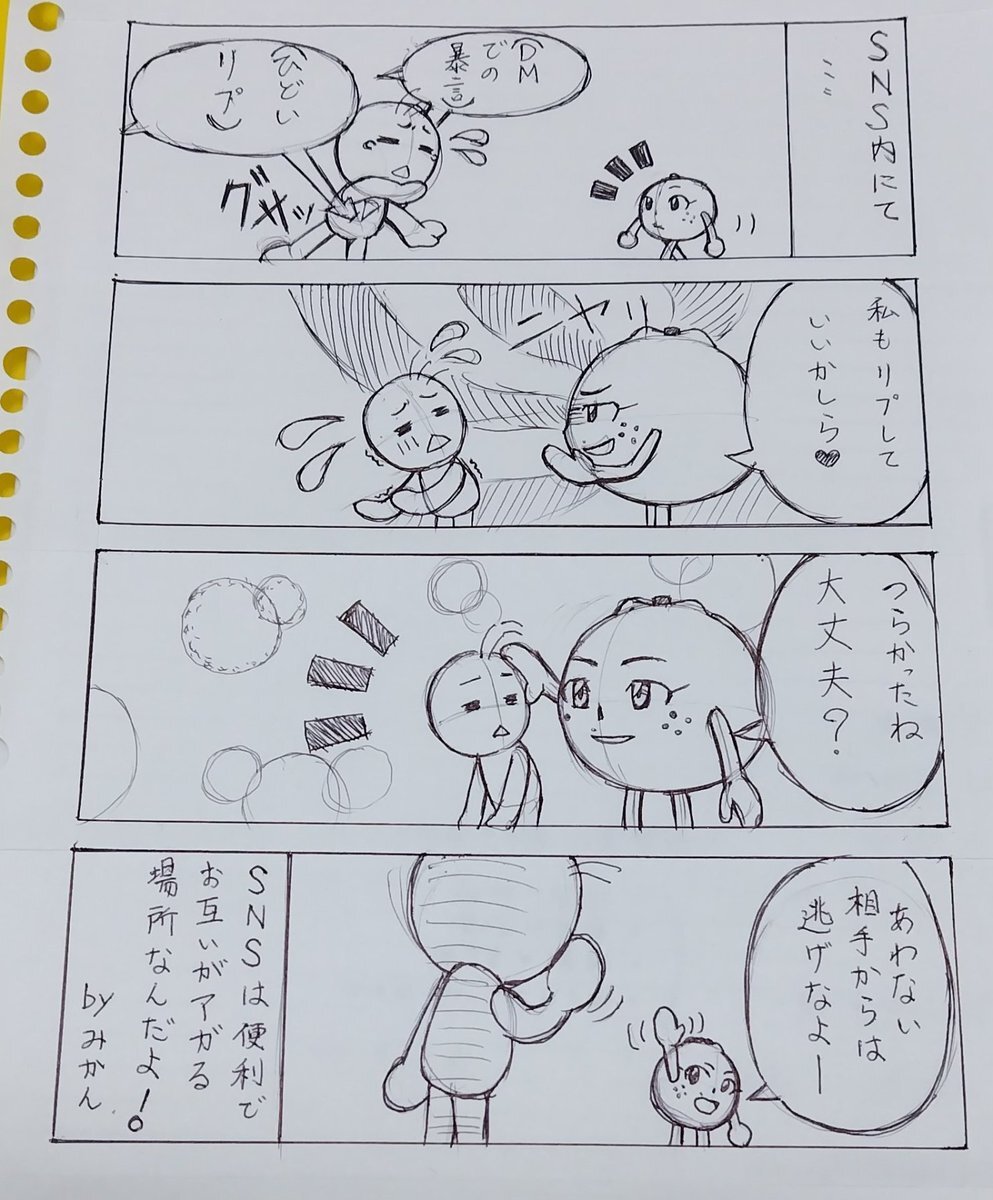 SNS内にて
…
(DM
での
暴言)
(ひどい
リプ)
グサッ
私もリプして
いいかしら♥
ニヤリ
つらかったね
大丈夫?
あわない
相手からは
逃げなよー
SNSは便利で
お互いがアガる
場所なんだよ!
byみかん